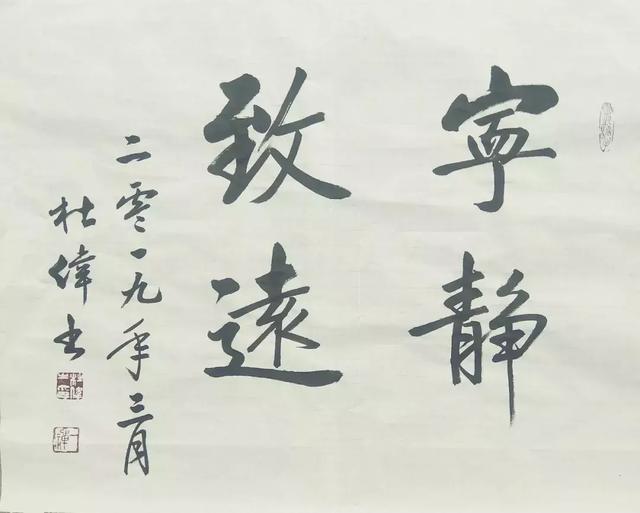 寧靜
致遠
二零一九年三月
杜偉书